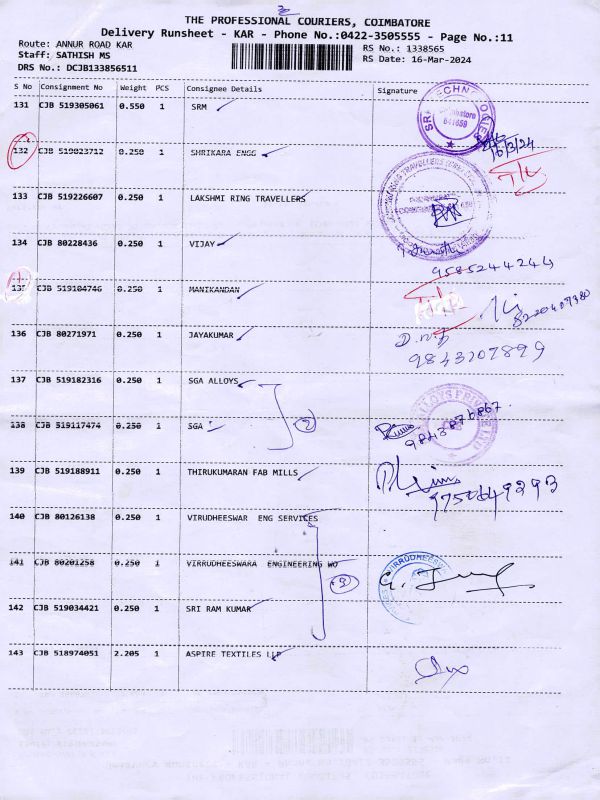 THE PROFESSIONAL COURIERS, COIMBATORE
Delivery Runsheet - KAR - Phone No.:0422-3505555 - Page No.:11
Route: ANNUR ROAD KAR
Staff: SATHISH MS
DRS No.: DCJB133856511
RS No.: 1338565
RS Date: 16-Mar-2024
S No Consignment No Weight PCS Consignee Details Signature
131 CJB 519305061 0.550 1 SRM
132 CJB 519023712 0.250 1 SHRIKARA ENGG
133 CJB 519226607 0.250 1 LAKSHMI RING TRAVELLERS
134 CJB 80228436 0.250 1 VIJAY
9585244244
135 CJB 519104746 0.250 1 MANIKANDAN
8220407380
136 CJB 80271971 0.250 1 JAYAKUMAR
9843207899
137 CJB 519182316 0.250 1 SGA ALLOYS
2
138 CJB 519117474 0.250 1 SGA
9843876867
139 CJB 519188911 0.250 1 THIRUKUMARAN FAB MILLS
9750649293
140 CJB 80126138 0.250 1 VIRUDHEESWAR ENG SERVICES
141 CJB 80201258 0.250 1 VIRRUDHEESWARA ENGINEERING WO
3
142 CJB 519034421 0.250 1 SRI RAM KUMAR
143 CJB 518974051 2.205 1 ASPIRE TEXTILES LLP